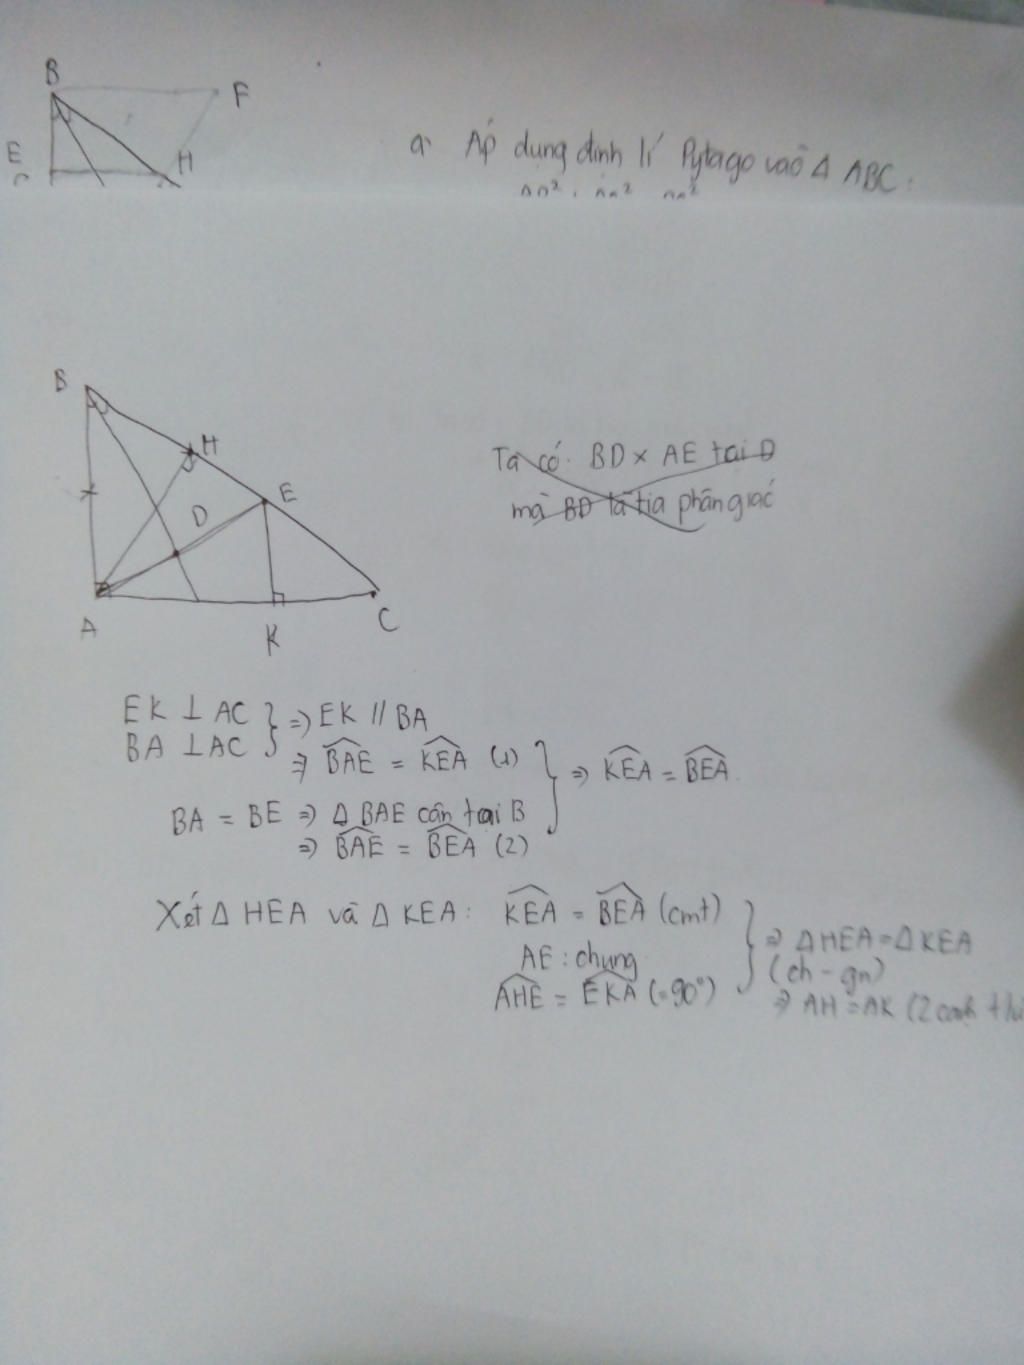 B
F
E
H
a. Áp dụng định lí Pytago vào Δ ABC:
B
H
E
D
A
K
C
Ta có: BD × AE tại D
mà BD là tia phân giác
EK ⊥ AC } => EK // BA
BA ⊥ AC
=> BAE = KEA (1) } => KEA = BEA.
BA = BE => Δ BAE cân tại B
=> BAE = BEA (2)
Xét Δ HEA và Δ KEA: KEA = BEA (cmt)
AE : chung
AHE = EKA (=90°)
} => ΔHEA = ΔKEA
(ch - gn)
=> AH = AK (2 cạnh